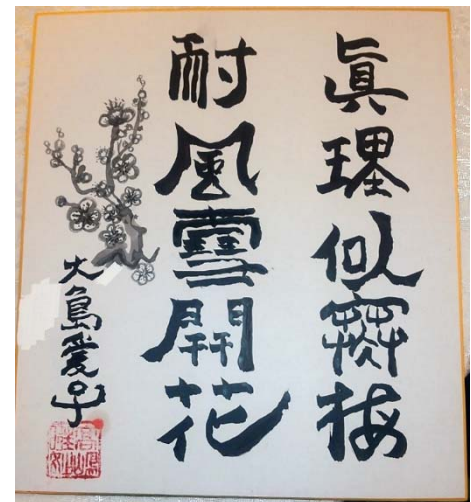 眞理似寒梅
耐風雪開花
大島愛子